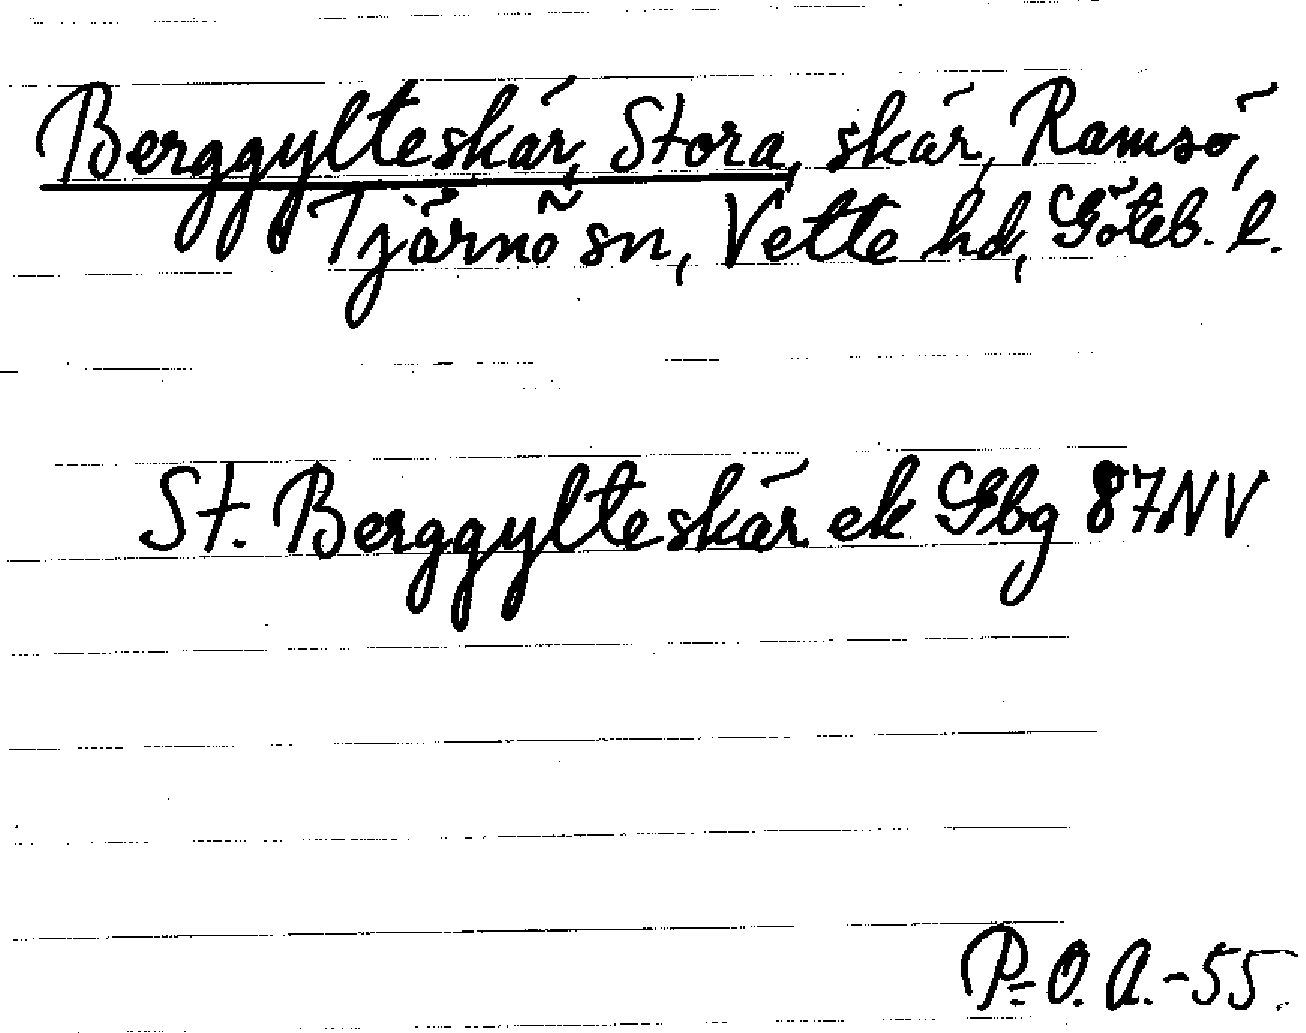 Berggylteskär, Stora, skär, Ramsö,
Tjärnö sn, Vette hd, Göteb. l.
St. Berggylteskär ek Gbg 87NV
P-O. A.-55.